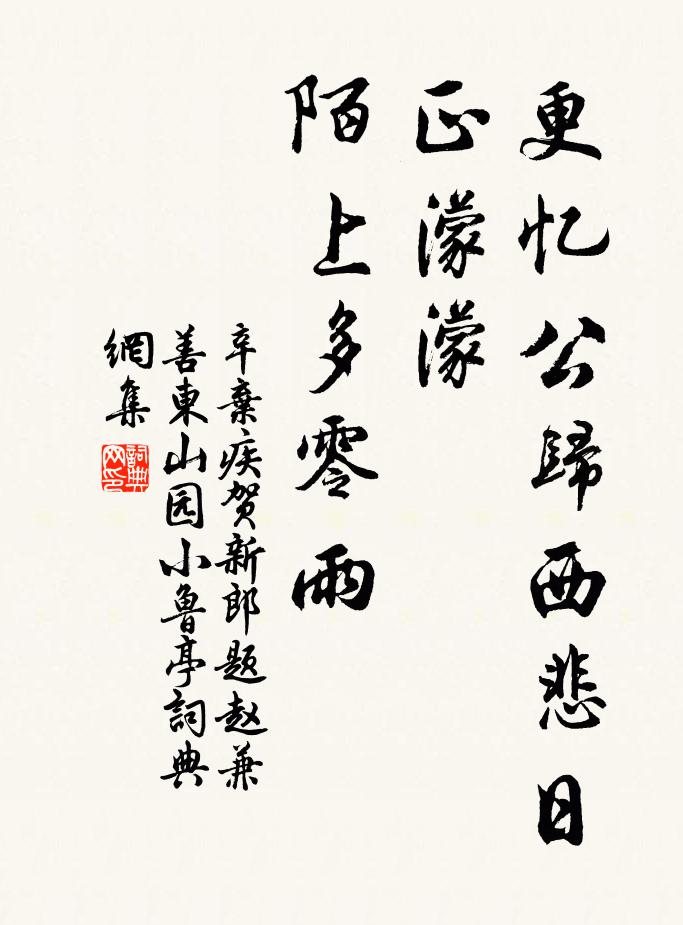 更忆公歸西悲日
正濛濛
陌上多零雨
辛棄疾贺新郎题赵兼
善東山园小魯亭詞典
網集
詞典
网印